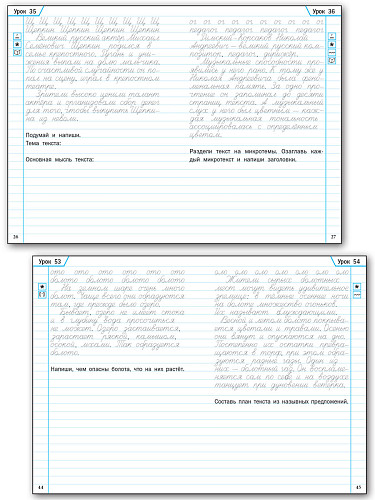 Урок 35
Щ Щ Щ Щ Щ Щ Щ Щ Щ
Щепкин Щепкин Щепкин Щепкин
Великий русский актёр Михаил
Семёнович Щепкин родился в
семье крепостного. Нужда и уни-
жения выпали на долю мальчика.
По счастливой случайности он по-
пал на сцену, играл в крепостном
театре.
Зрители высоко ценили талант
актёра и организовали сбор денег
для того, чтобы выкупить Щепки-
на из неволи.
Подумай и напиши.
Тема текста:
Основная мысль текста:
36
Урок 36
педагог педагог педагог педагог
Римский-Корсаков Николай
Андреевич – великий русский ком-
позитор, педагог, дирижёр.
Музыкальные способности про-
явились у него рано. К тому же у
Николая Андреевича была фено-
менальная память. За одно про-
чтение он запоминал до десяти
страниц текста. А музыкальный
слух у него был цветной – каж-
дая музыкальная тональность
ассоциировалась с определённым
цветом.
Раздели текст на микротемы. Озаглавь каж-
дый микротекст и напиши заголовки.
37
Урок 53
ото ото ото ото ото ото ото
болото болото болото болото
На земном шаре очень много
болот. Чаще всего они образуются
там, где прежде было озеро.
Бывает, озеро не имеет стока
и в глубину вода просочиться
не может. Озеро застаивается,
зарастает ряской, камышом,
осокой, мхами. Так образуется
болото.
Напиши, чем опасны болота, что на них растёт.
44
Урок 54
оло оло оло оло оло оло оло
Жители сырых болотных
мест могут видеть удивительное
зрелище: в тёмные осенние ночи
на болоте множество огоньков.
Их называют блуждающими.
Весной и летом болото покрыва-
ется цветами и травами. Осенью
они вянут и опускаются на дно.
Постепенно их остатки превра-
щаются в торф, при этом обра-
зуются разные газы. Один из
них – болотный газ. Он воспламе-
няется сам по себе и на воздухе
танцует при дуновении ветерка.
Составь план текста из назывных предложений.
45